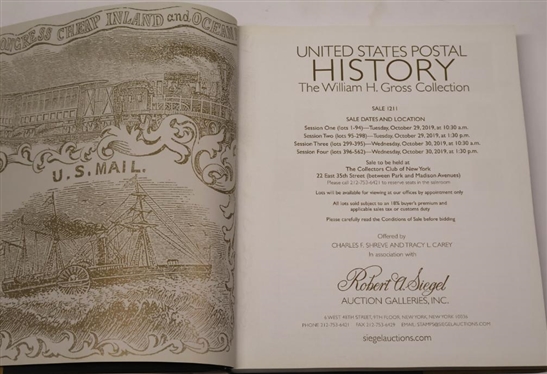 CONGRESS CHEAP INLAND and OCEAN
U.S. MAIL.
UNITED STATES POSTAL
HISTORY
The William H. Gross Collection
SALE 1211
SALE DATES AND LOCATION
Session One (lots 1-94)—Tuesday, October 29, 2019, at 10:30 a.m.
Session Two (lots 95-298)—Tuesday, October 29, 2019, at 1:30 p.m.
Session Three (lots 299-395)—Wednesday, October 30, 2019, at 10:30 a.m.
Session Four (lots 396-562)—Wednesday, October 30, 2019, at 1:30 p.m.
Sale to be held at
The Collectors Club of New York
22 East 35th Street (between Park and Madison Avenues)
Please call 212-753-6421 to reserve seats in the saleroom
Lots will be available for viewing at our offices by appointment only
All lots sold subject to an 18% buyer's premium and
applicable sales tax or customs duty
Please carefully read the Conditions of Sale before bidding
Offered by
CHARLES F. SHREVE AND TRACY L. CAREY
In association with
Robert A. Siegel
AUCTION GALLERIES, INC.
6 WEST 48TH STREET, 9TH FLOOR, NEW YORK, NEW YORK 10036
PHONE 212-753-6421 FAX 212-753-6429 EMAIL: STAMPS@SIEGELAUCTIONS.COM
siegelauctions.com